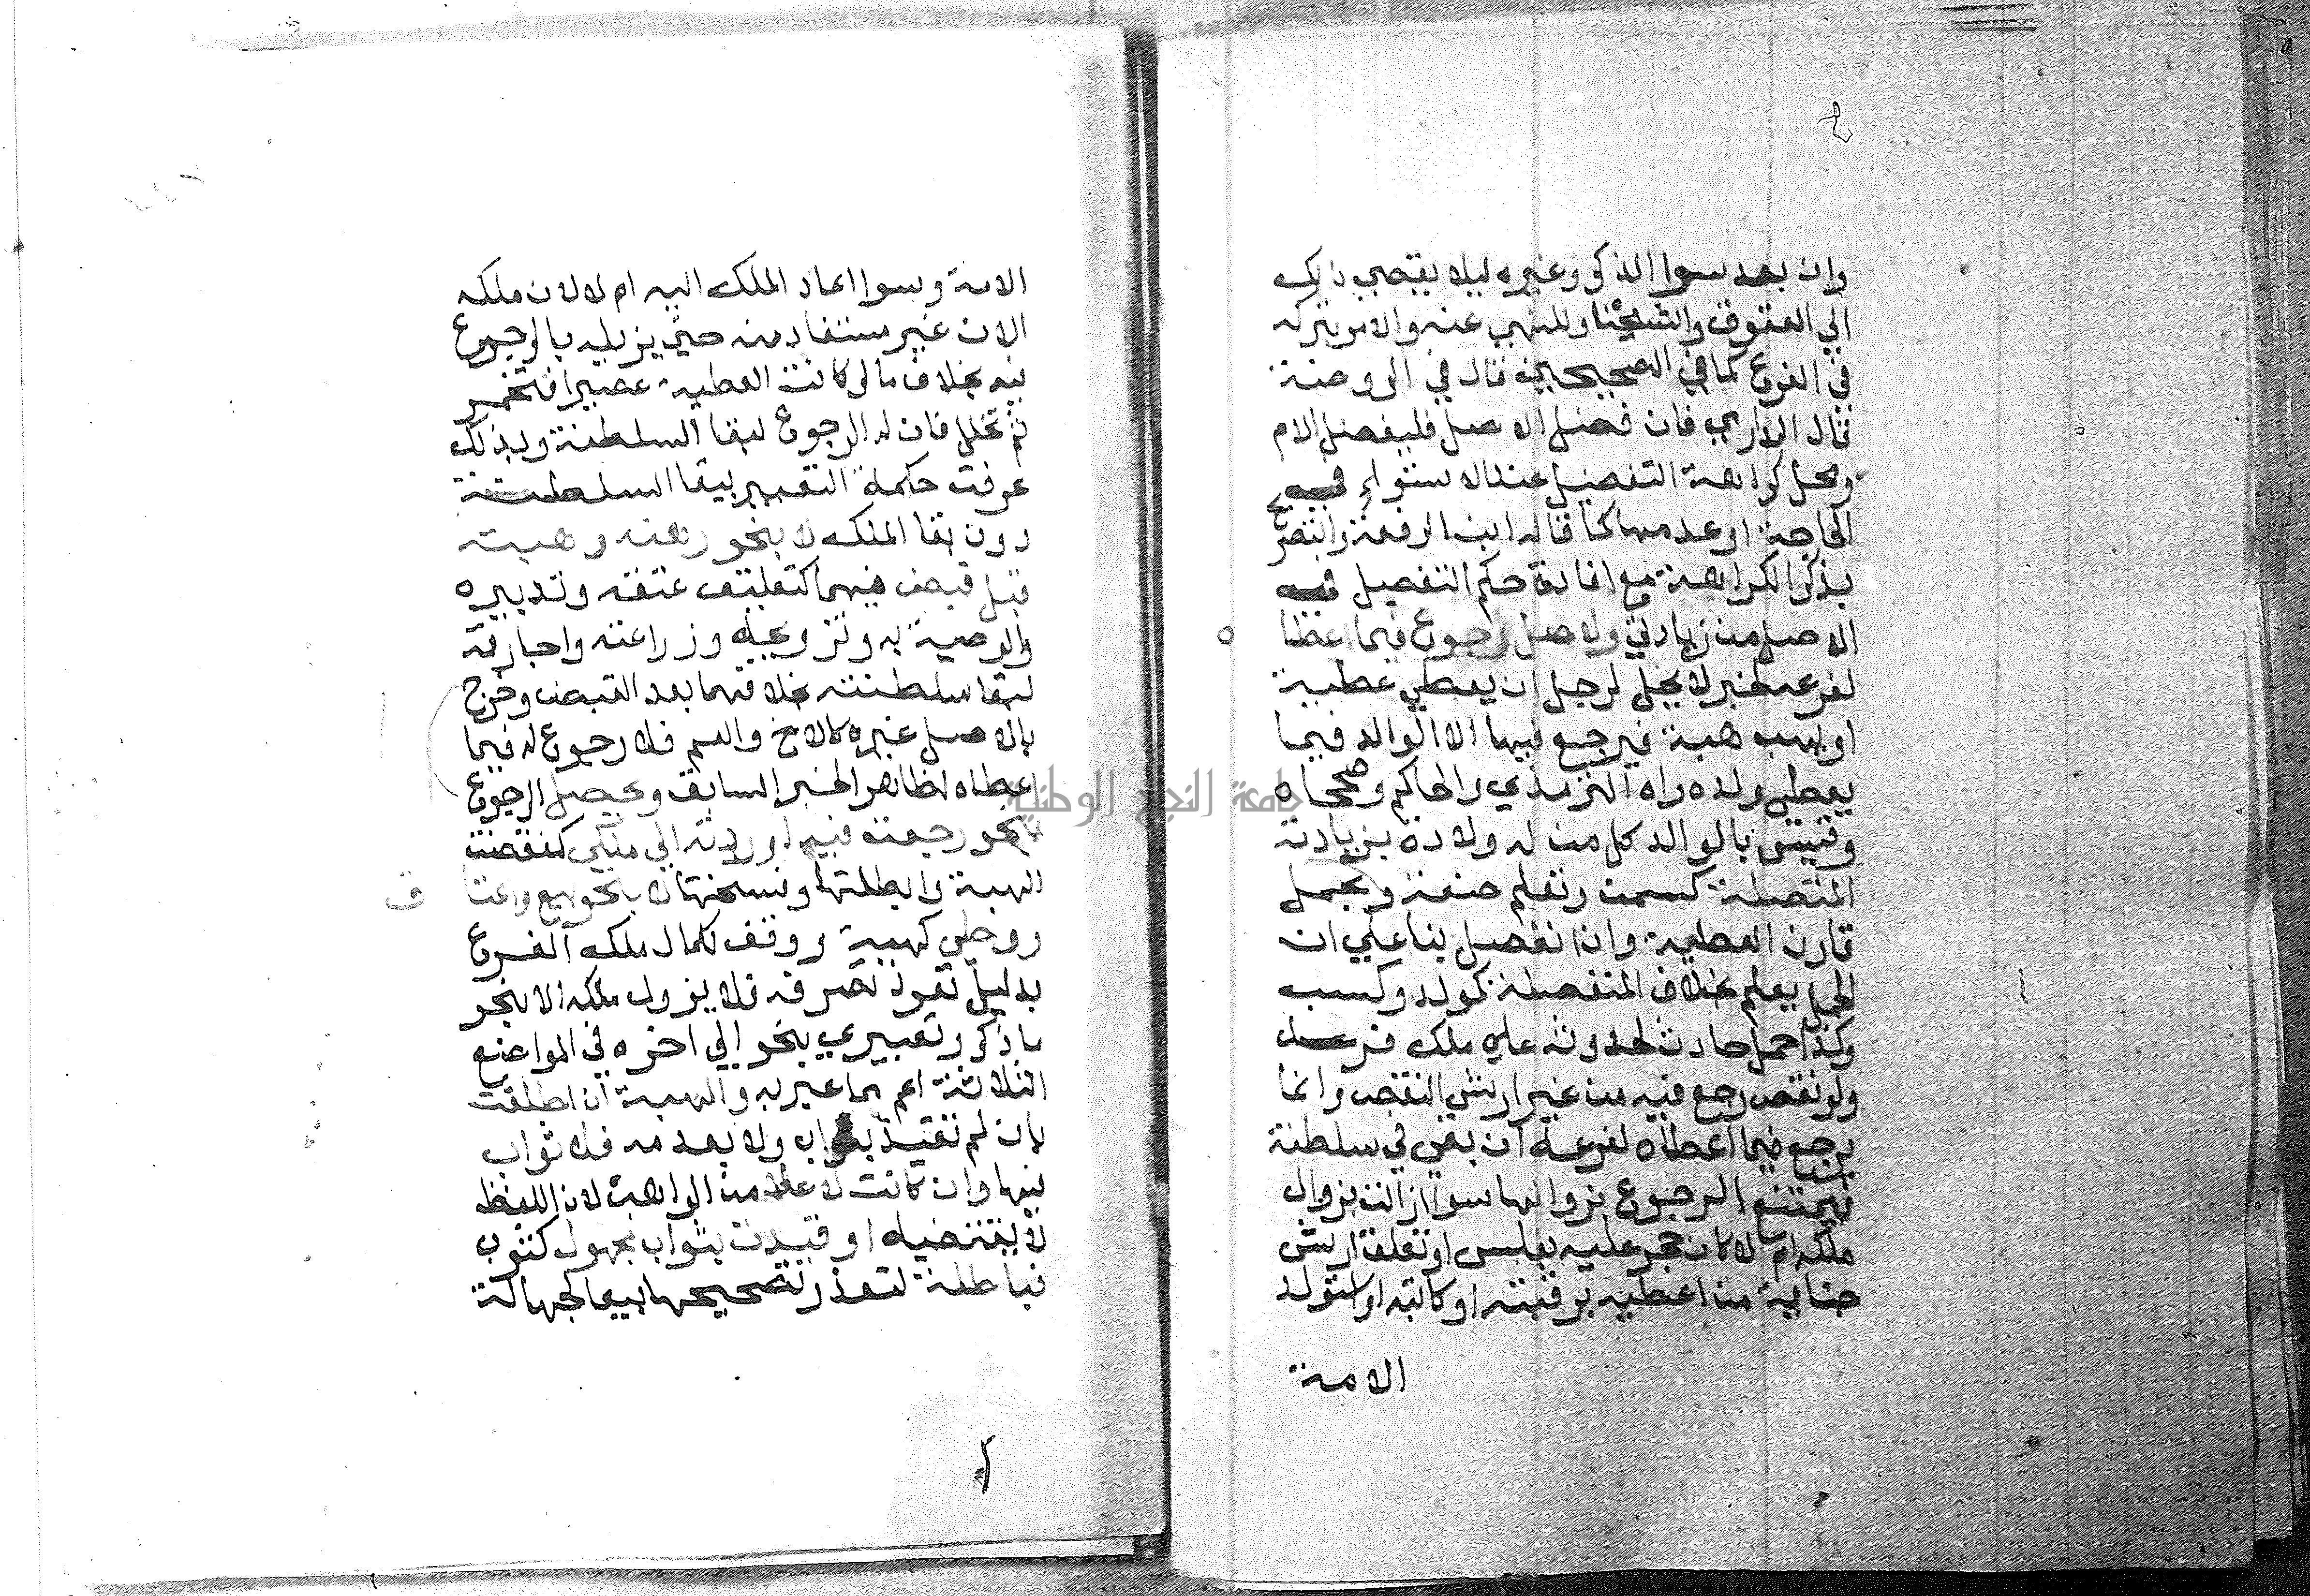 وان بعد سوا الذكر وغيره ليلا يفضي ذلك
الي العقوق والشحنا وللنهي عنه والامر بتركه
في الفروع كما في الصحيحين قال في الروضة
قال الدارمي فان فضل الاصل فليفضل الام
ومحل كراهة التفضيل عند الاستواء في
الحاجة او عدمها كما قاله ابن الرفعة والتصريح
بذكر الكراهة مع افادة حكم التفضيل في
الاصل من زيادتي ولاصل رجوع فيما اعطا
لفرعه لخبر لا يحل لرجل ان يعطي عطية
او يهب هبة فيرجع فيها الا الوالد فيما
يعطي ولده راه الترمذي والحاكم وصححاه
وقيس بالوالد كل من له ولادة بزيادته
المتصلة كسمن وتعلم صنعة وحمل
قارن العطية وان انفصل بنا علي ان
الحمل يعلم بخلاف المنفصلة كولد وكسب
وكذا حمل حادث لحدوثه علي ملك فرعه
ولو نقص رجع فيه من غير ارش النقص وانما
يرجع فيما اعطاه لفرعه ان بقي في سلطنة
فيمتنع الرجوع بزوالها سوا ازالت بزوال
ملكه ام لا كان حجر عليه بفلس او تعلق ارش
جناية من اعطيه برقبته او كاتبه او استولد
الامة
الامة وسوا اعاد الملك اليه ام لا لان ملكه
الان غير مستفاد منه حتي يزيله بالرجوع
فيه بخلاف ما لو كانت العطية عصيرا فتخمر
ثم تخلل فان له الرجوع لبقا السلطنة وبذلك
عرفت حكمة التعبير ببقا السلطنة
دون بقا الملك لا بنحو رهنه وهبته
قبل قبض فيهما كتعليق عتقه وتدبيره
والوصية به وتزويجه وزراعته واجارته
لبقا سلطنته بخلافهما بعد القبض وخرج
بالاصل غيره كالاخ والعم فلا رجوع له فيما
اعطاه لظاهر الخبر السابق ويحصل الرجوع
بنحو رجعت فيه او رددته الي ملكي كنقضت
الهبة وابطلتها وفسختها لا بنحو بيع واعتا
ق
ووطي كهبة ووقف لكمال ملك الفرع
بدليل نفوذ تصرفه فلا يزول ملكه الا بنحو
ما ذكر وتعبيري بنحو الي اخره في المواضع
الثلاثة اعم مما عبر به والهبة ان اطلقت
بان لم تقيد بثواب ولا بعدمه فلا ثواب
فيها وان كانت لاعلا من الواهب لان اللفظ
لا يقتضيه او قيدت بثواب مجهول كثوب
فباطلة لتعذر تصحيحها بيعا لجهالة
جامعة النجاح الوطنية